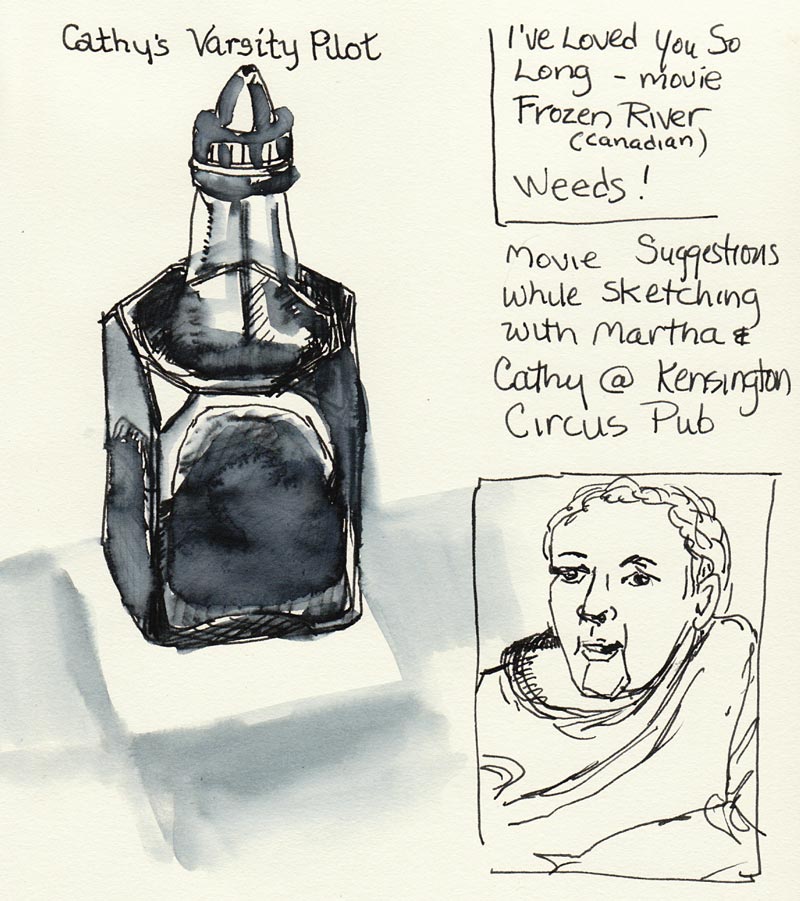 Cathy's Varsity Pilot
I've Loved you So
Long - movie
Frozen River
(Canadian)
Weeds!
Movie Suggestions
while sketching
with Martha &
Cathy @ Kensington
Circus Pub